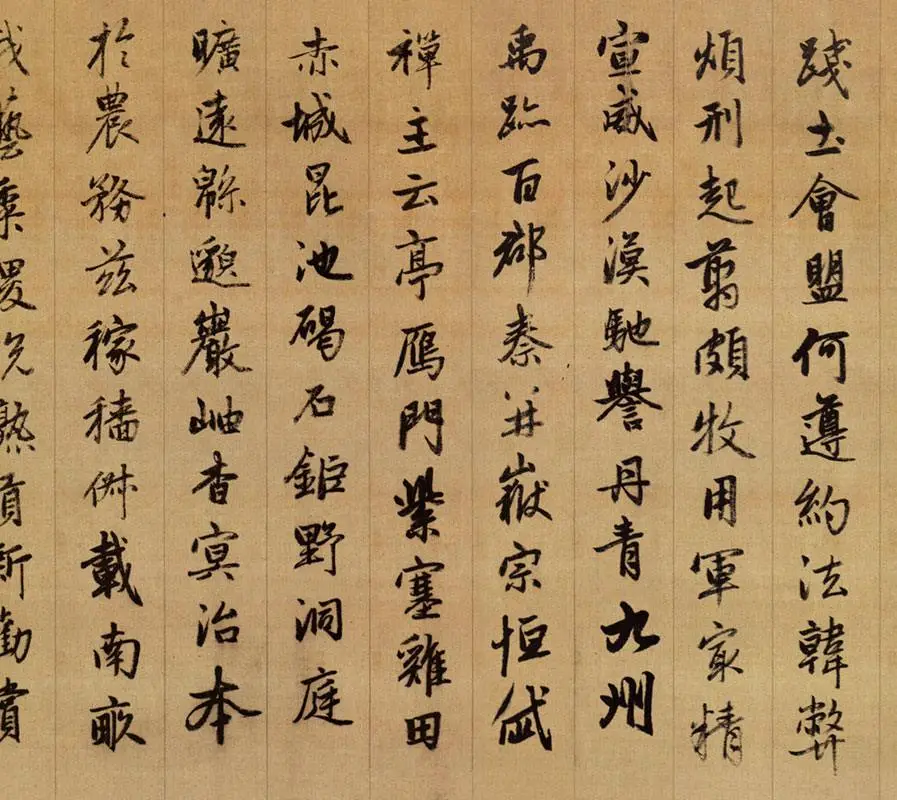 踐土會盟何遵約法韓弊
煩刑起翦頗牧用軍最精
宣威沙漠馳譽丹青九州
禹跡百郡秦并嶽宗恒岱
禪主云亭鴈門紫塞雞田
赤城昆池碣石鉅野洞庭
曠遠緜邈巖岫杳冥治本
於農務茲稼穡俶載南畝
我藝黍稷稅熟貢新勸賞